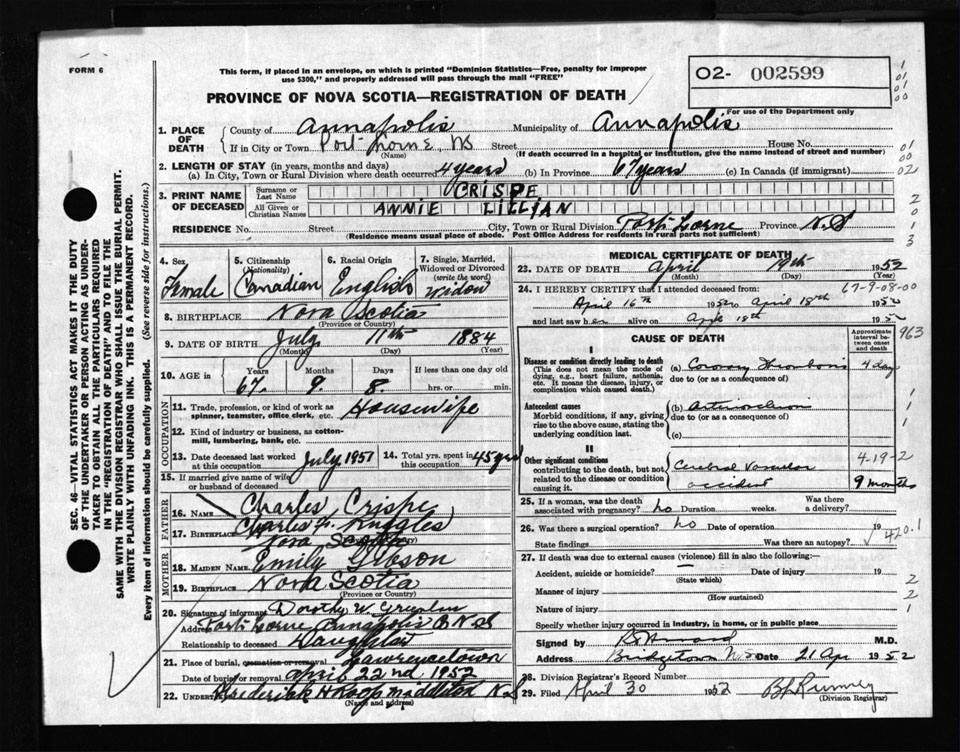 FORM 6
This form, if placed in an envelope, on which is printed "Dominion Statistics—Free, penalty for improper
use $300," and properly addressed will pass through the mail "FREE"
PROVINCE OF NOVA SCOTIA—REGISTRATION OF DEATH
02- 002599
For use of the Department only
1. PLACE OF DEATH { County of Annapolis Municipality of Annapolis
If in City or Town Port Lorne, NS Street House No.
(Name) (If death occurred in a hospital or institution, give the name instead of street and number)
2. LENGTH OF STAY (in years, months and days)
(a) In City, Town or Rural Division where death occurred 4 years (b) In Province 67 years (c) In Canada (if immigrant)
3. PRINT NAME OF DECEASED { Surname or Last Name CRISPE
All Given or Christian Names ANNIE LILLIAN
RESIDENCE No. Street City, Town or Rural Division Port Lorne Province N.S
(Residence means usual place of abode. Post Office Address for residents in rural parts not sufficient)
4. Sex Female
5. Citizenship (Nationality) Canadian
6. Racial Origin English
7. Single, Married, Widowed or Divorced (write the word) Widow
8. BIRTHPLACE Nova Scotia
(Province or Country)
9. DATE OF BIRTH July 11th 1884
(Month) (Day) (Year)
10. AGE in { Years Months Days If less than one day old
67 9 8 hrs. or min.
OCCUPATION
11. Trade, profession, or kind of work as spinner, teamster, office clerk, etc. Housewife
12. Kind of industry or business, as cotton-mill, lumbering, bank, etc.
13. Date deceased last worked at this occupation July 1951 14. Total yrs. spent in this occupation 45 yrs
15. If married give name of wife or husband of deceased
Charles Crispe
FATHER
16. NAME Charles Ruggles
17. BIRTHPLACE Nova Scotia
MOTHER
18. MAIDEN NAME Emily Gibson
19. BIRTHPLACE Nova Scotia
(Province or Country)
20. Signature of informant Dorothy W.
Address Port Lorne Annapolis
Relationship to deceased Daughter
21. Place of burial, cremation or removal Lawrencetown
Date of burial or removal April 22nd 1952
22. UNDERTAKER Frederick H Roop Middleton N.S
(Name and address)
MEDICAL CERTIFICATE OF DEATH
23. DATE OF DEATH April 19th 1952
(Month) (Day)
24. I HEREBY CERTIFY that I attended deceased from: 67-9-08-00
April 16th 1952 to April 18th 1952
and last saw her alive on 18th 195
CAUSE OF DEATH
Approximate interval between onset and death
963
I
Disease or condition directly leading to death
(This does not mean the mode of dying, e.g., heart failure, asthenia, etc. It means the disease, injury, or complication which caused death.)
(a) Coronary Thrombosis 4 day
due to (or as a consequence of)
Antecedent causes
Morbid conditions, if any, giving rise to the above cause, stating the underlying condition last.
(b)
due to (or as a consequence of)
(c)
II
Other significant conditions
contributing to the death, but not related to the disease or condition causing it.
Cerebral Vascular accident 9 months
4-19-2
25. If a woman, was the death associated with pregnancy? no Duration weeks. Was there a delivery?
26. Was there a surgical operation? no Date of operation 19
State findings Was there an autopsy?
420.1
27. If death was due to external causes (violence) fill in also the following:—
Accident, suicide or homicide? Date of injury 19
(State which)
Manner of injury
(How sustained)
Nature of injury
Specify whether injury occurred in industry, in home, or in public place
Signed by M.D.
Address Bridgetown N.S Date 21 Apr 1952
28. Division Registrar's Record Number
29. Filed April 30 1952
(Division Registrar)
SEC. 46—VITAL STATISTICS ACT MAKES IT THE DUTY
OF THE UNDERTAKER OR PERSON ACTING AS UNDER-
TAKER TO OBTAIN ALL THE PARTICULARS REQUIRED
IN THE "REGISTRATION OF DEATH" AND TO FILE THE
SAME WITH THE DIVISION REGISTRAR WHO SHALL ISSUE THE BURIAL PERMIT.
WRITE PLAINLY WITH UNFADING INK. THIS IS A PERMANENT RECORD.
Every item of information should be carefully supplied. (See reverse side for instructions.)